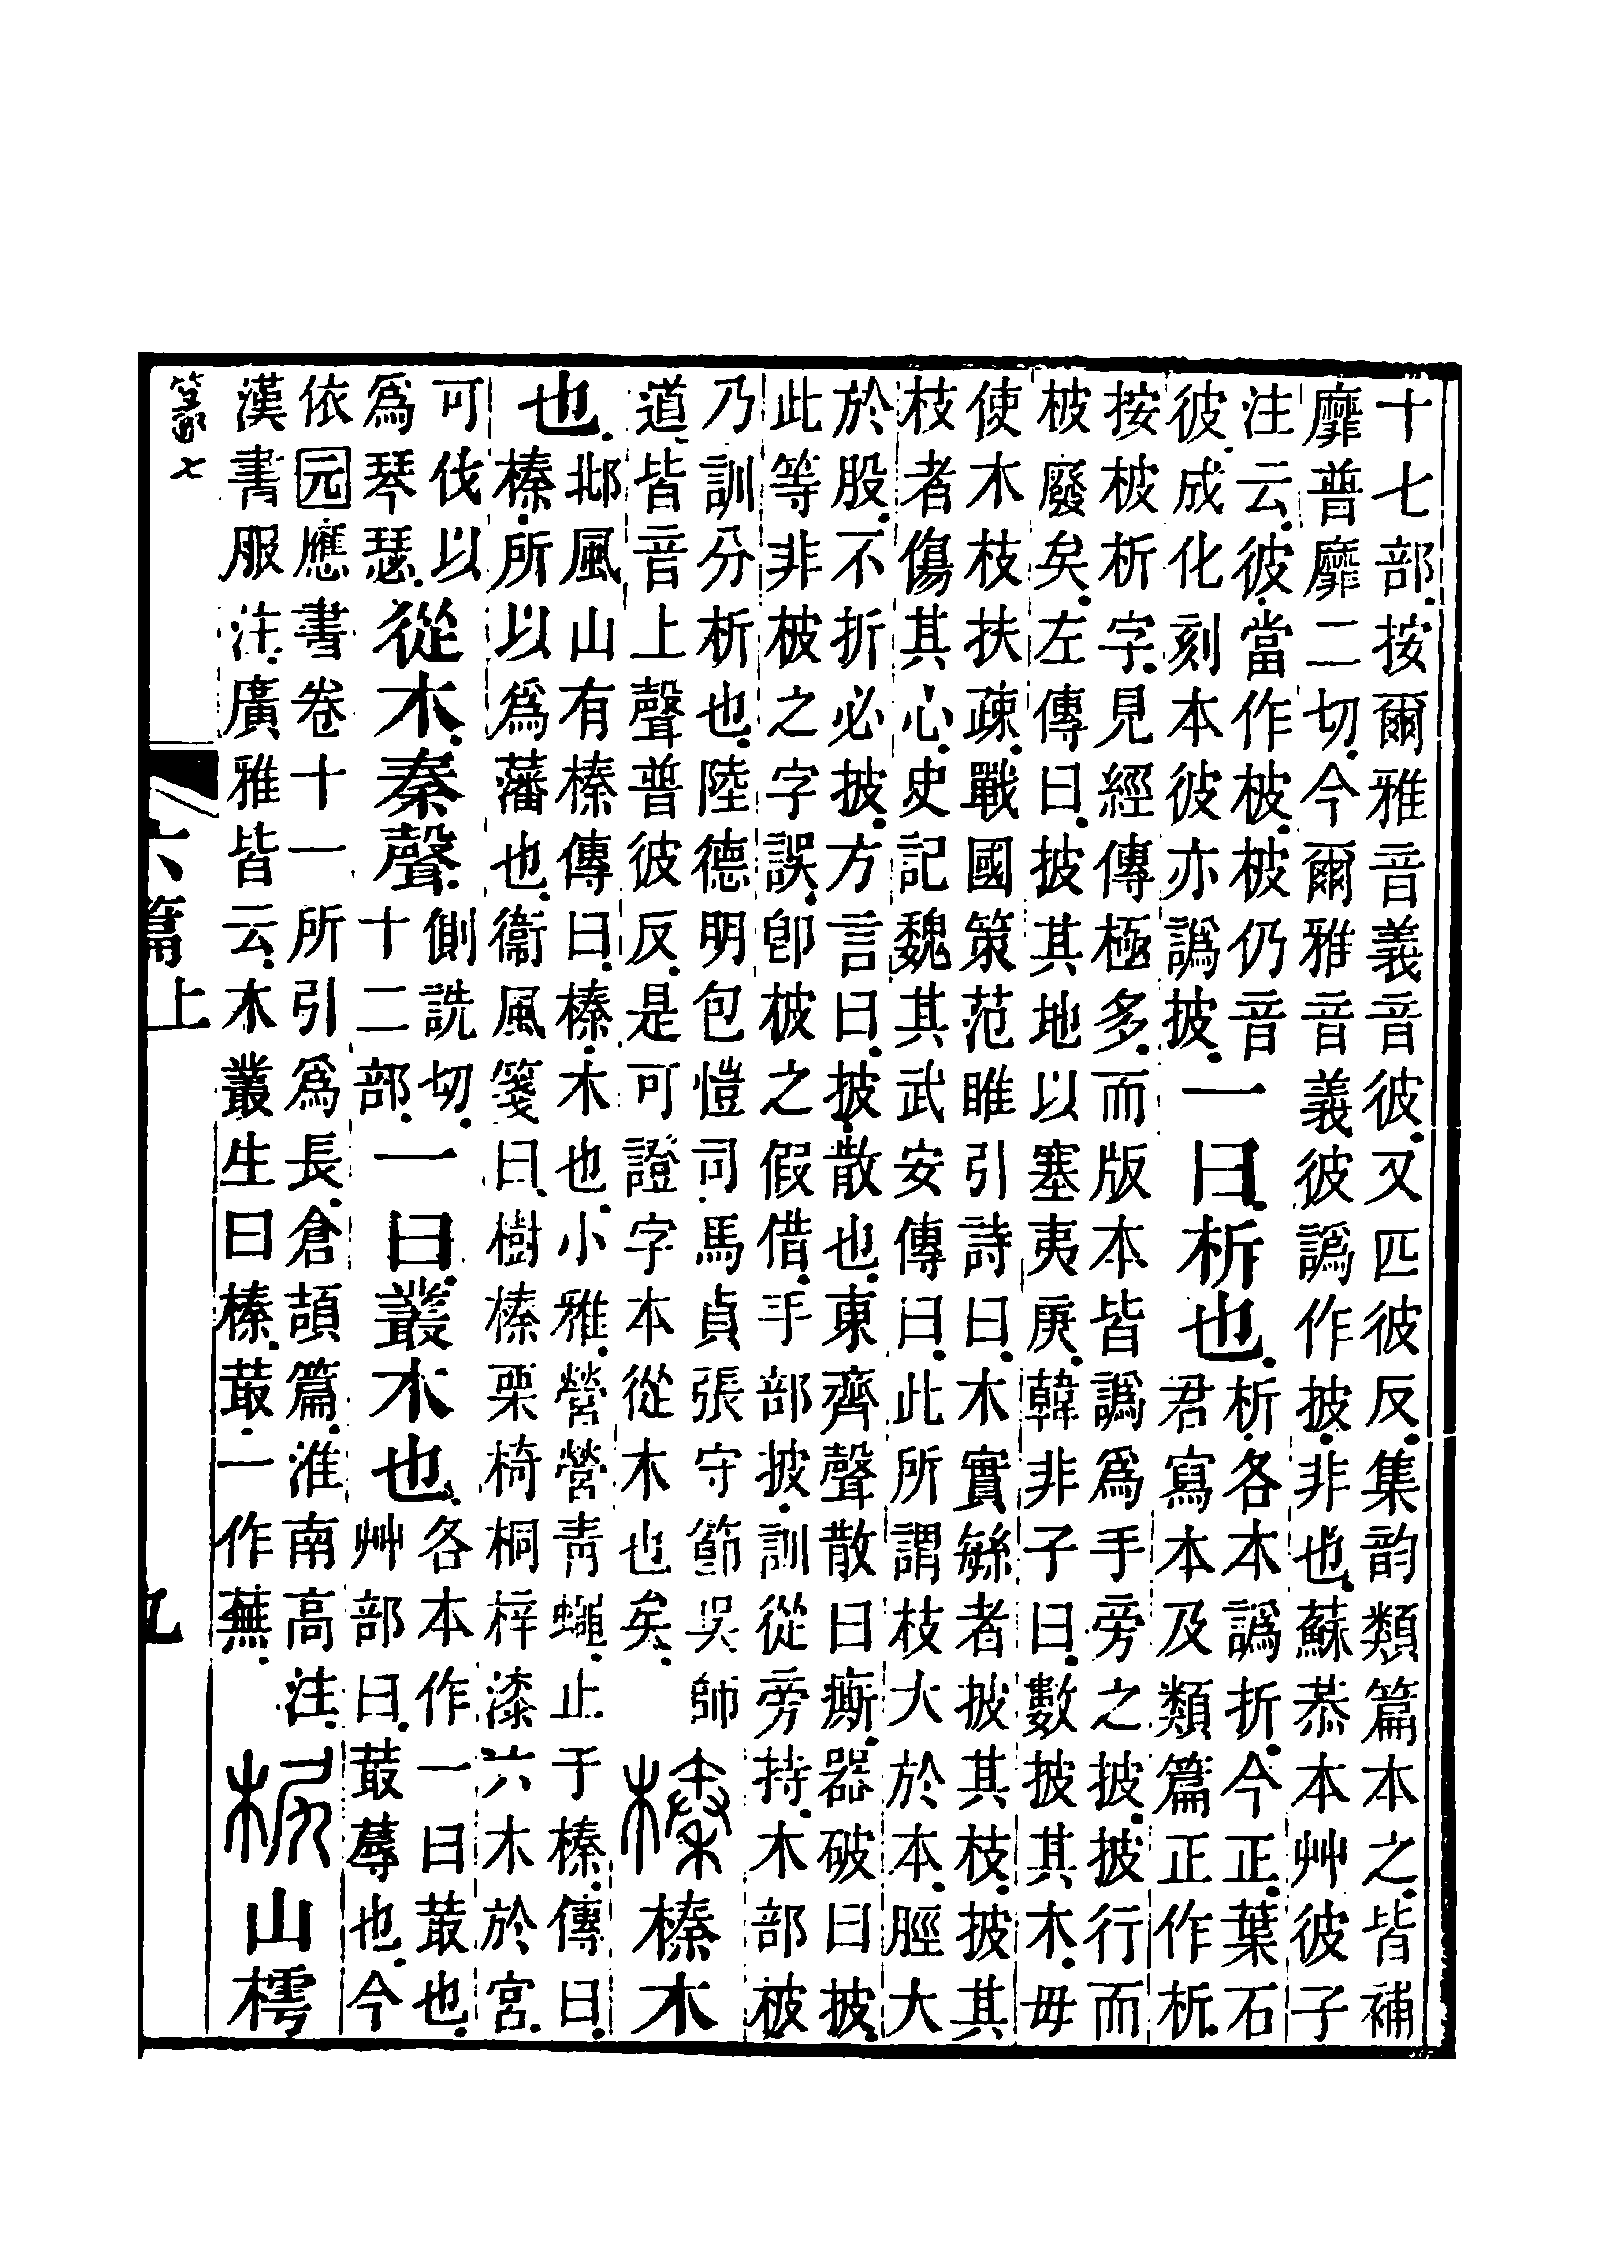 十七部按爾雅音義音彼又匹彼反集韵類篇本之皆補
靡普靡二切今爾雅音義彼譌作披非也蘇恭本艸彼子
注云彼當作柀柀仍音
彼成化刻本彼亦譌披
一曰析也
析各本譌折今正葉石
君寫本及類篇正作析
按柀析字見經傳極多而版本皆譌爲手旁之披披行而
柀廢矣左傳曰披其地以塞夷庚韓非子曰數披其木毋
使木枝扶疎戰國策范睢引詩曰木實緐者披其枝披其
枝者傷其心史記魏其武安傳曰此所謂枝大於本脛大
於股不折必披方言曰披散也東齊聲散曰㾷器破曰披
此等非柀之字誤卽柀之假借手部披訓從旁持木部柀
乃訓分析也陸德明包愷司馬貞張守節吳師
道皆音上聲普彼反是可證字本從木也矣
榛榛木
也
邶風山有榛傳曰榛木也小雅營營靑蠅止于榛傳曰
榛所以爲藩也衞風箋曰樹榛栗椅桐梓漆六木於宮
可伐以
爲琴瑟
從木秦聲
側詵切
十二部
一曰叢木也
各本作一曰菆也
艸部曰菆蓐也今
依元應書卷十一所引爲長倉頡篇淮南高注
漢書服注廣雅皆云木叢生曰榛菆一作蕪
㭒山樗
篆七
六篇上
九